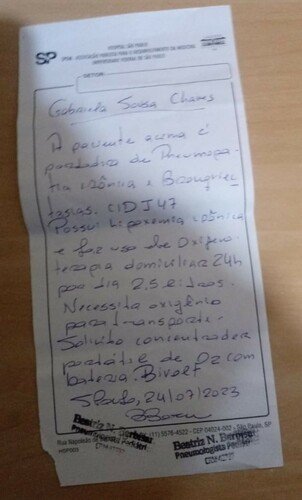 HOSPITAL SÃO PAULO
SPDM - ASSOCIAÇÃO PAULISTA PARA O DESENVOLVIMENTO DA MEDICINA
UNIVERSIDADE FEDERAL DE SÃO PAULO
SETOR:
Gabriela Sousa Chaves
A paciente acima é
portadora de Pneumopa-
tia crônica e Bronquiec
tasias. CID J47
Possui hipoxemia crônica
e faz uso de Oxigeno-
terapia domiciliar 24h
por dia 2,5 litros.
Necessita oxigênio
para transporte.
Solicito concentrador
portátil de O2 com
bateria. Bivolt
SPaulo, 24/07/2023
Rua Napoleão de (11) 5576-4522 - CEP 04024-002 - São Paulo, SP
HSP003
Beatriz N.
Pneumologista
Beatriz N.
Pneumologista